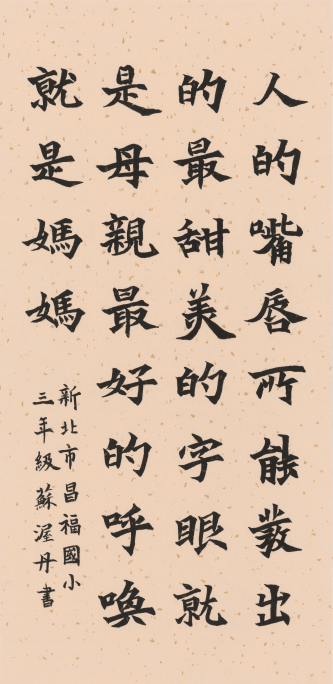 人的嘴唇所能發出
的最甜美的字眼就
是母親最好的呼喚
就是媽媽
新北市昌福國小
三年級蘇渥丹書